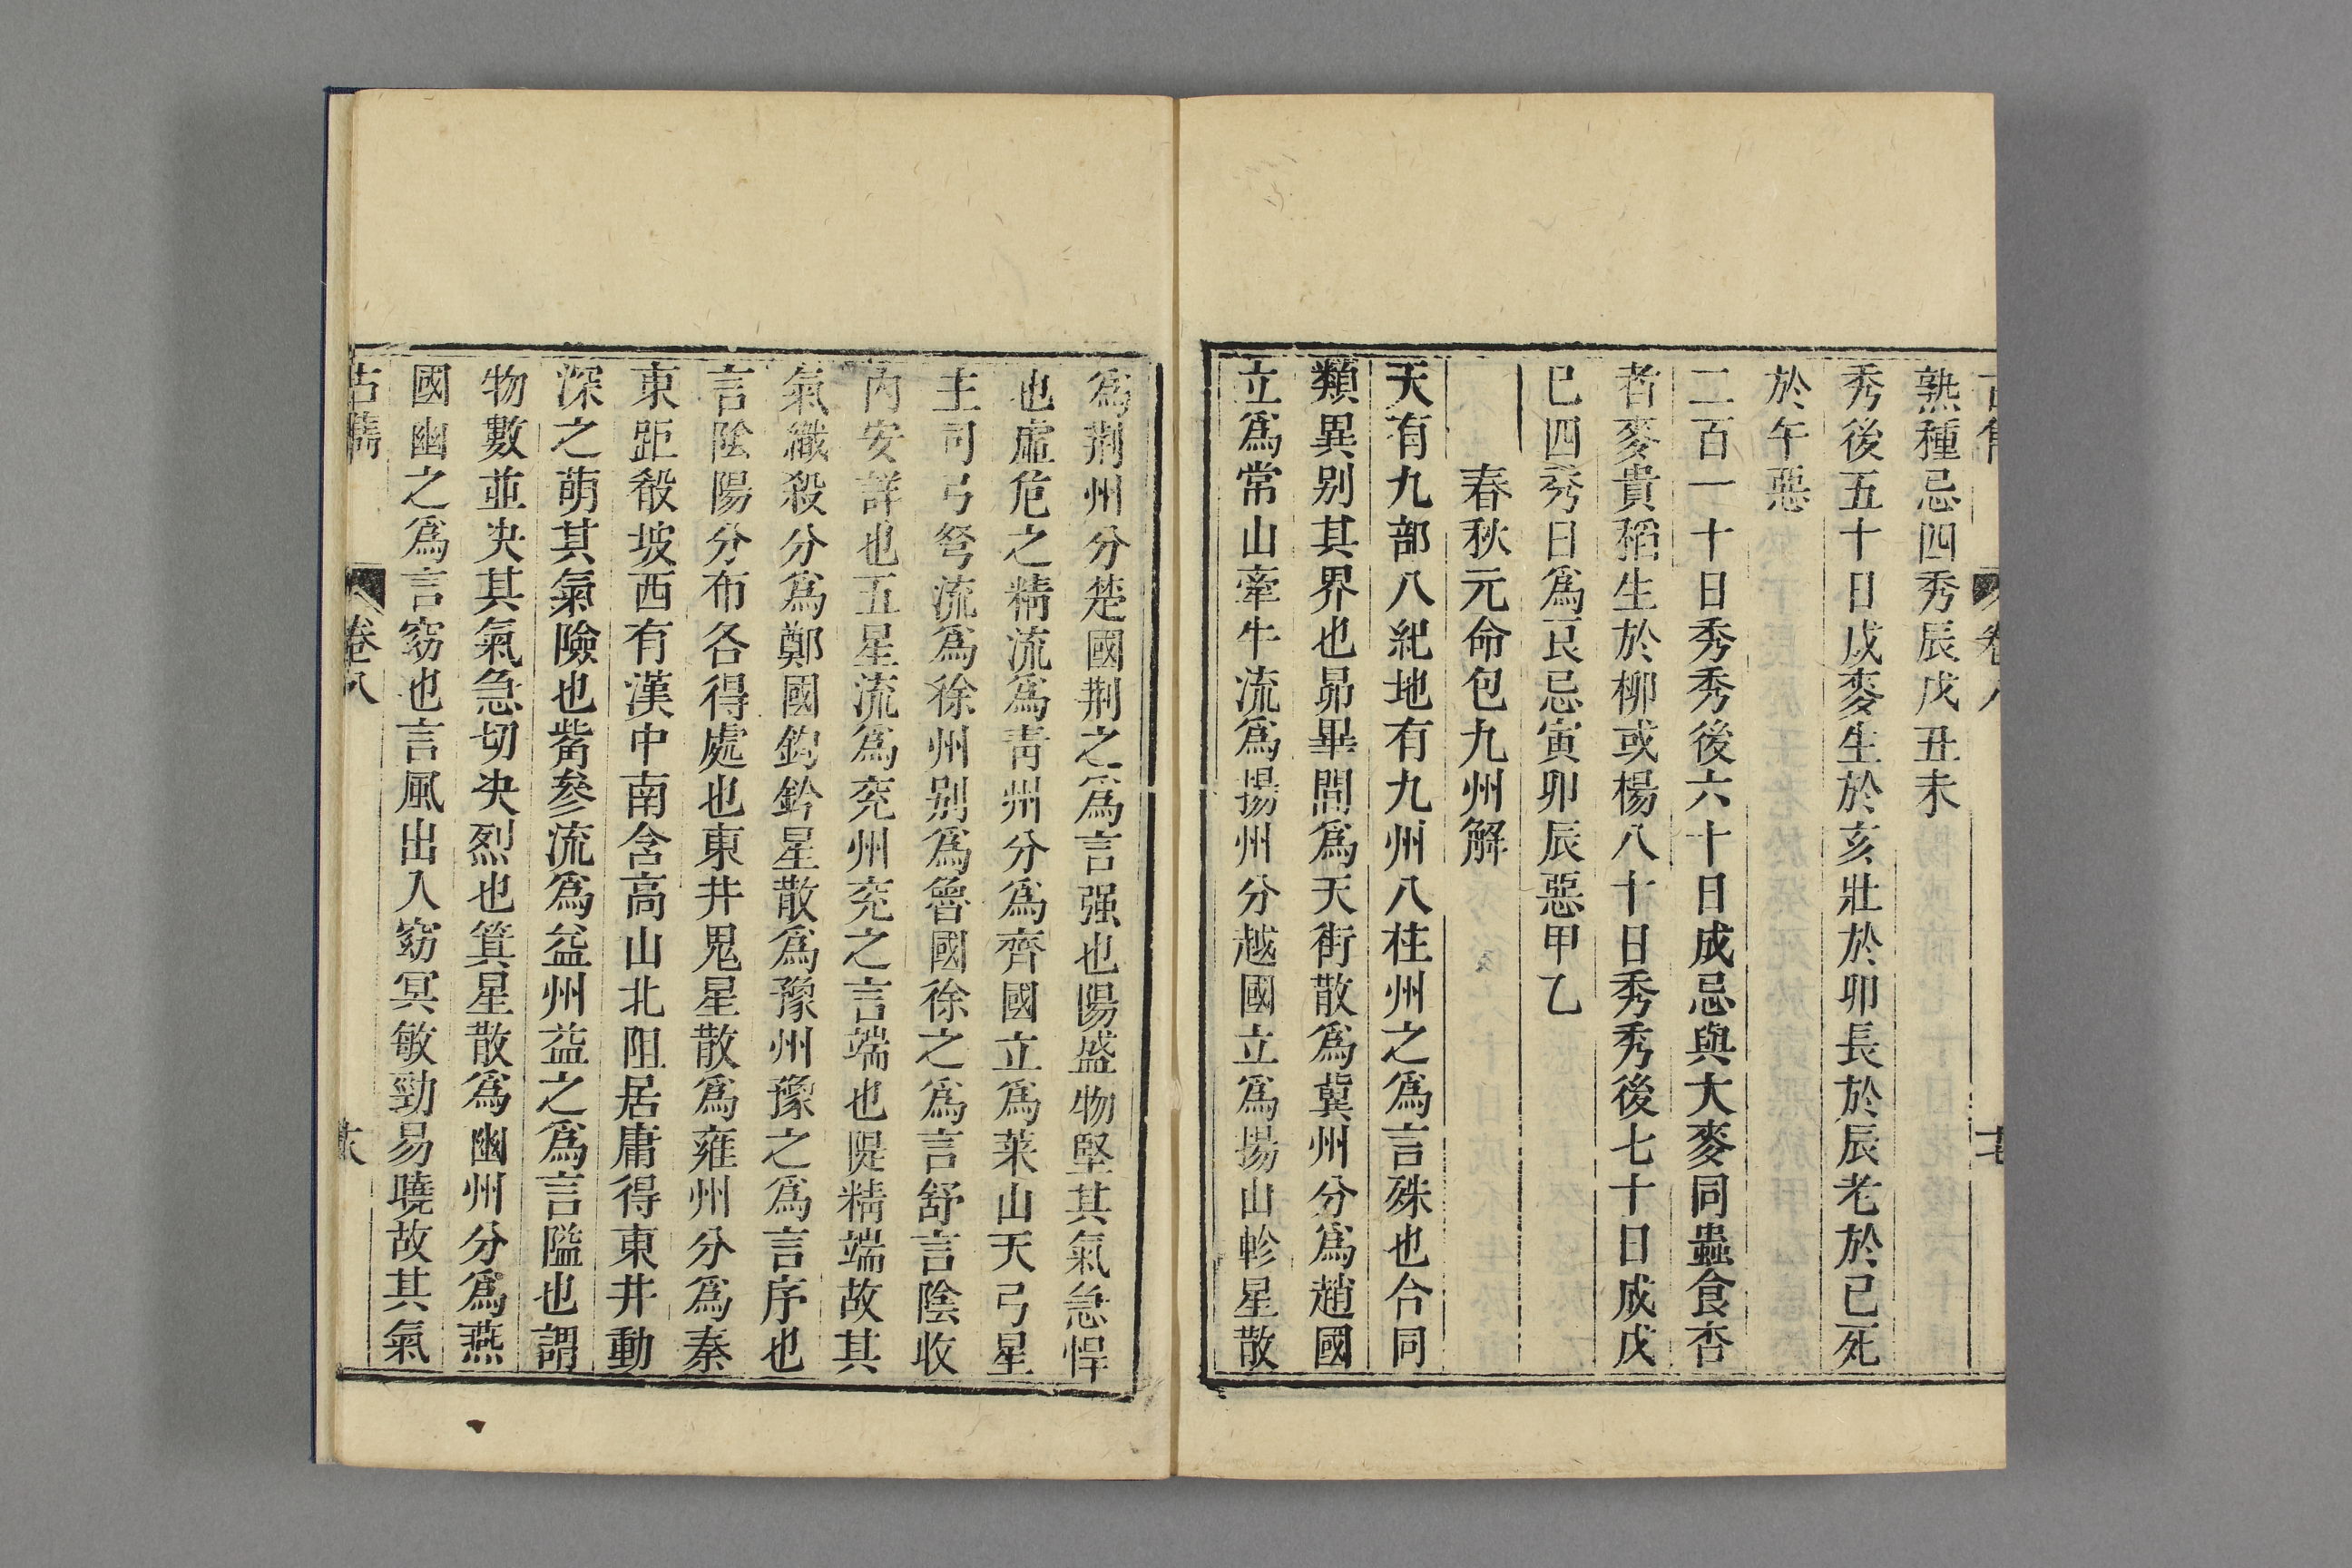 卷八
熟種忌四秀辰戊丑未
秀後五十日成麥生於亥壯於卯長於辰老於巳死
於午惡
二百一十日秀秀後六十日成忌與大麥同蟲食杏
者麥貴稻生於柳或楊八十日秀秀後七十日成戊
巳四季日爲良忌寅卯辰惡甲乙
春秋元命包九州解
天有九部八紀地有九州八柱州之爲言殊也合同
類異别其界也昴畢間爲天街散爲冀州分爲趙國
立爲常山牽牛流爲揚州分越國立爲揚山軫星散
爲荆州分楚國荆之爲言强也陽盛物堅其氣急悍
也虛危之精流爲靑州分爲齊國立爲萊山天弓星
主司弓弩流爲徐州别爲魯國徐之爲言舒言陰收
內安詳也五星流爲兖州兖之言端也隄精端故其
氣纖殺分爲鄭國鈎鈐星散爲豫州豫之爲言序也
言陰陽分布各得處也東井鬼星散爲雍州分爲秦
東距殽坡西有漢中南含高山北阻居庸得東井動
深之萌其氣險也觜參流爲益州益之爲言隘也謂
物數並决其氣急切决烈也箕星散爲幽州分爲燕
國幽之爲言窈也言風出入窈冥敏勁易曉故其氣
古雋 卷八